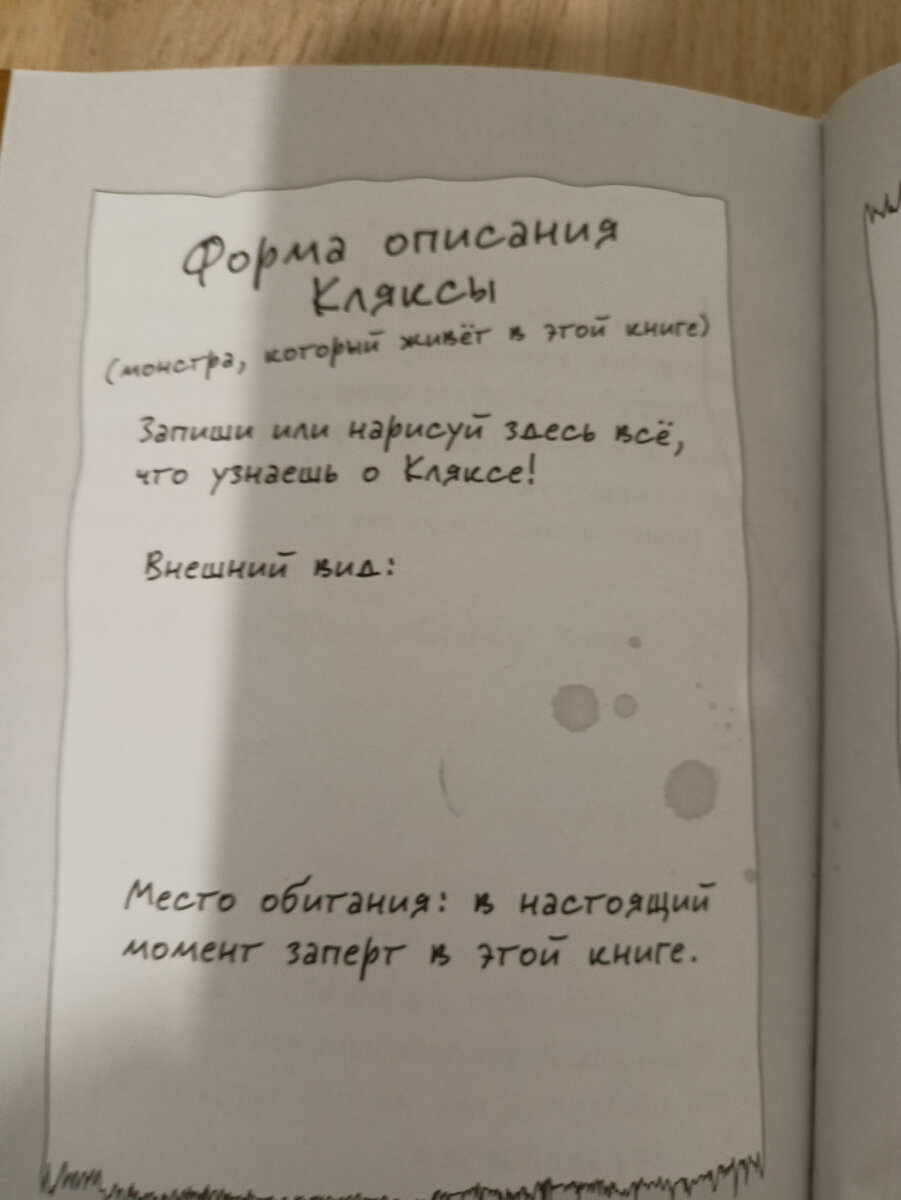 Форма описания
Кляксы
(монстра, который живёт в этой книге)
Запиши или нарисуй здесь всё,
что узнаешь о Кляксе!
Внешний вид:
Место обитания: в настоящий
момент заперт в этой книге.